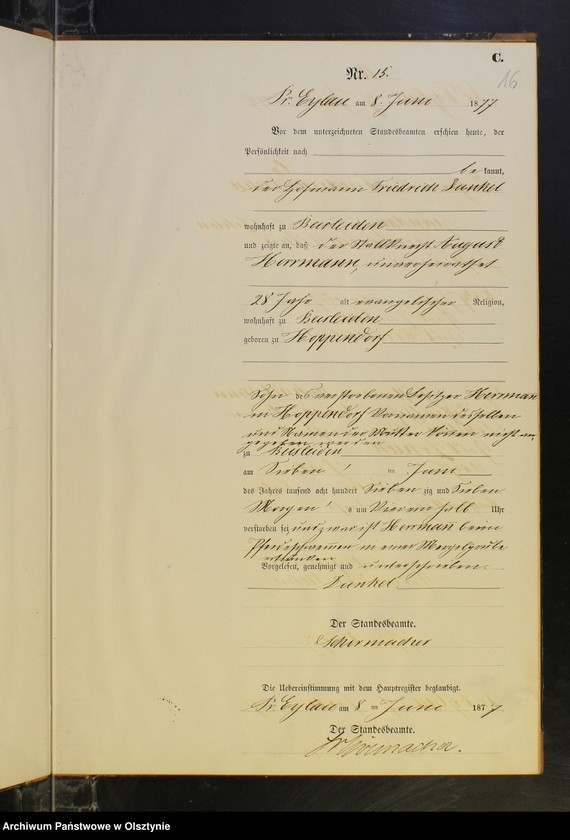 C.
16
Nr. 15.
Pr. Eylau am 8. Juni 1877
Vor dem unterzeichneten Standesbeamten erschien heute, der
Persönlichkeit nach
be kannt,
der Hofmann Friedrich Dunkel
wohnhaft zu Beisleiden
und zeigte an, daß der Stallknecht August
Herrmann, unverheirathet
28 Jahr alt evangelischer Religion,
wohnhaft zu Beisleiden
geboren zu Hoppendorf
Sohn des verstorbenen Besitzer Herrmann
in Hoppendorf Vornamen desselben
und Namen der Mutter können nicht an
gegeben werden
zu Beisleiden
am Sieben ten Juni
des Jahres tausend acht hundert Sieben zig und Sieben
Morgens um Vier ein halb Uhr
verstorben sei und zwar ist Herrman beim
Pferdeschwemmen in einer Mergelgrube
ertrunken
Vorgelesen, genehmigt und unterschrieben.
Dunkel
Der Standesbeamte.
Schirmacher
Die Uebereinstimmung mit dem Hauptregister beglaubigt.
Pr. Eylau am 8 ten Juni 1877
Der Standesbeamte.
Schirmacher.
Archiwum Państwowe w Olsztynie